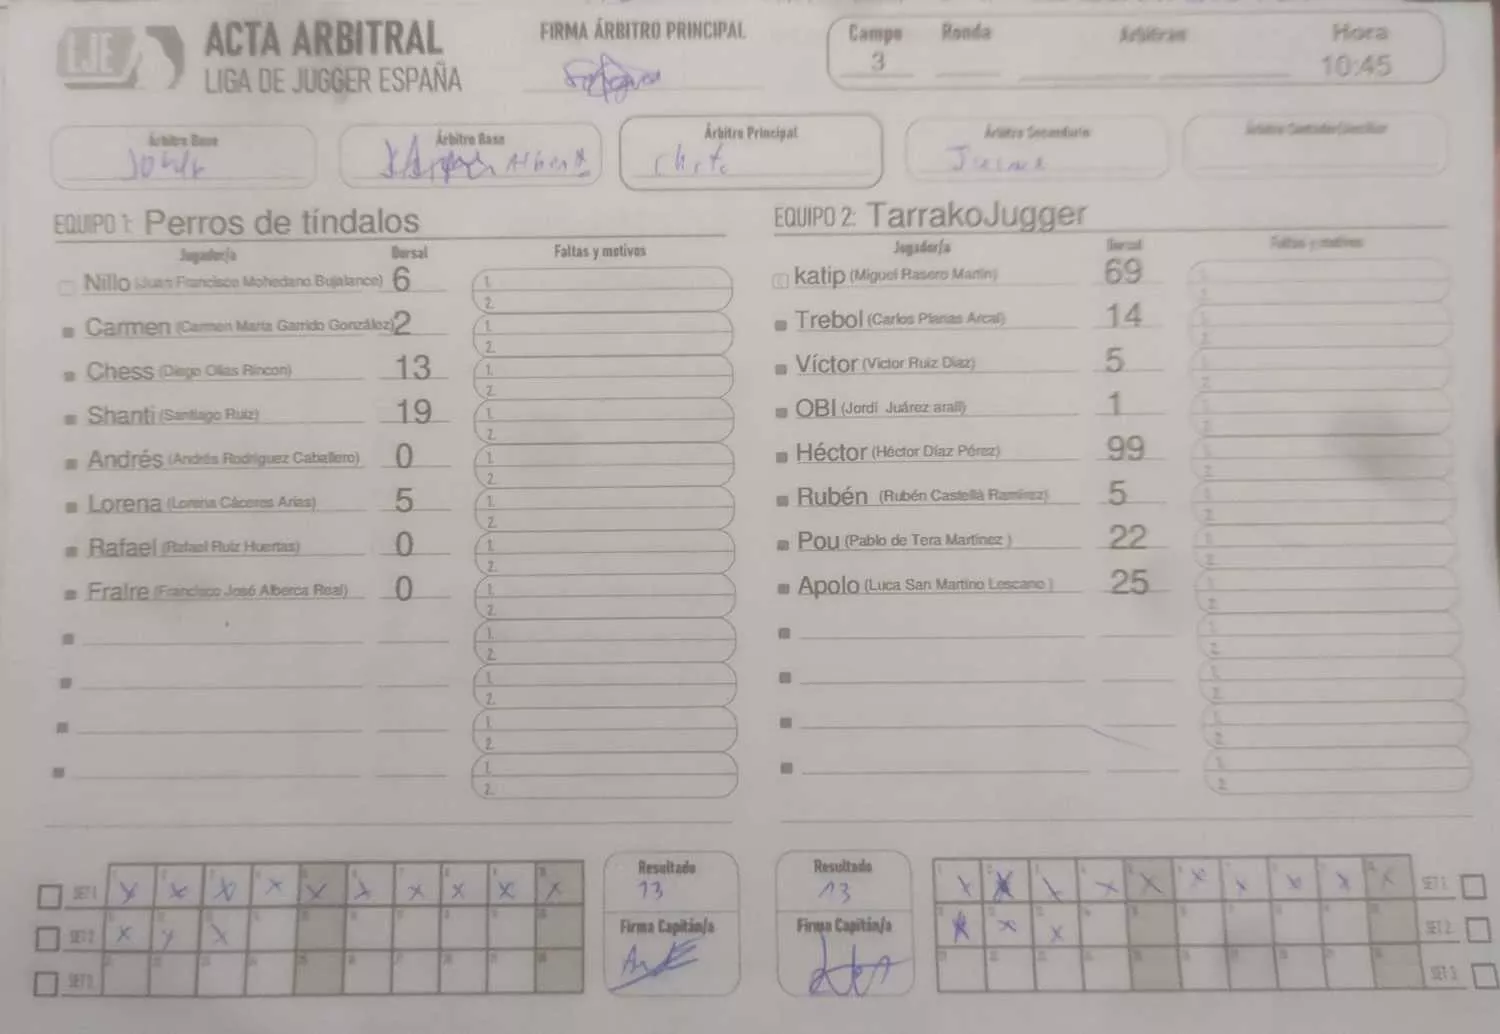 LJE
ACTA ARBITRAL
LIGA DE JUGGER ESPAÑA
FIRMA ÁRBITRO PRINCIPAL
Campo Ronda Arbitran Hora
3 10:45
Árbitro Base
Árbitro Base
Albert
Árbitro Principal
Árbitro Secundario
EQUIPO 1: Perros de tíndalos
Jugador/a Dorsal Faltas y motivos
Nillo (Juan Francisco Mohedano Bujalance) 6 1. 2.
Carmen (Carmen María Garrido González) 2 1. 2.
Chess (Diego Olías Rincón) 13 1. 2.
Shanti (Santiago Ruiz) 19 1. 2.
Andrés (Andrés Rodríguez Caballero) 0 1. 2.
Lorena (Lorena Cáceres Arias) 5 1. 2.
Rafael (Rafael Ruiz Huertas) 0 1. 2.
Fraire (Francisco José Alberca Real) 0 1. 2.
1. 2.
1. 2.
1. 2.
1. 2.
EQUIPO 2: TarrakoJugger
Jugador/a Dorsal Faltas y motivos
katip (Miguel Rasero Martín) 69 1. 2.
Trebol (Carlos Planas Arcal) 14 1. 2.
Víctor (Víctor Ruiz Díaz) 5 1. 2.
OBI (Jordi Juárez arall) 1 1. 2.
Héctor (Héctor Díaz Pérez) 99 1. 2.
Rubén (Rubén Castellà Ramírez) 5 1. 2.
Pou (Pablo de Tera Martínez ) 22 1. 2.
Apolo (Luca San Martino Lescano ) 25 1. 2.
1. 2.
1. 2.
1. 2.
1. 2.
SET 1. x x x x x x x x x x
SET 2. x x x
SET 3.
Resultado
13
Firma Capitán/a
Resultado
13
Firma Capitán/a
x x x x x x x x x x SET 1.
x x x SET 2.
SET 3.